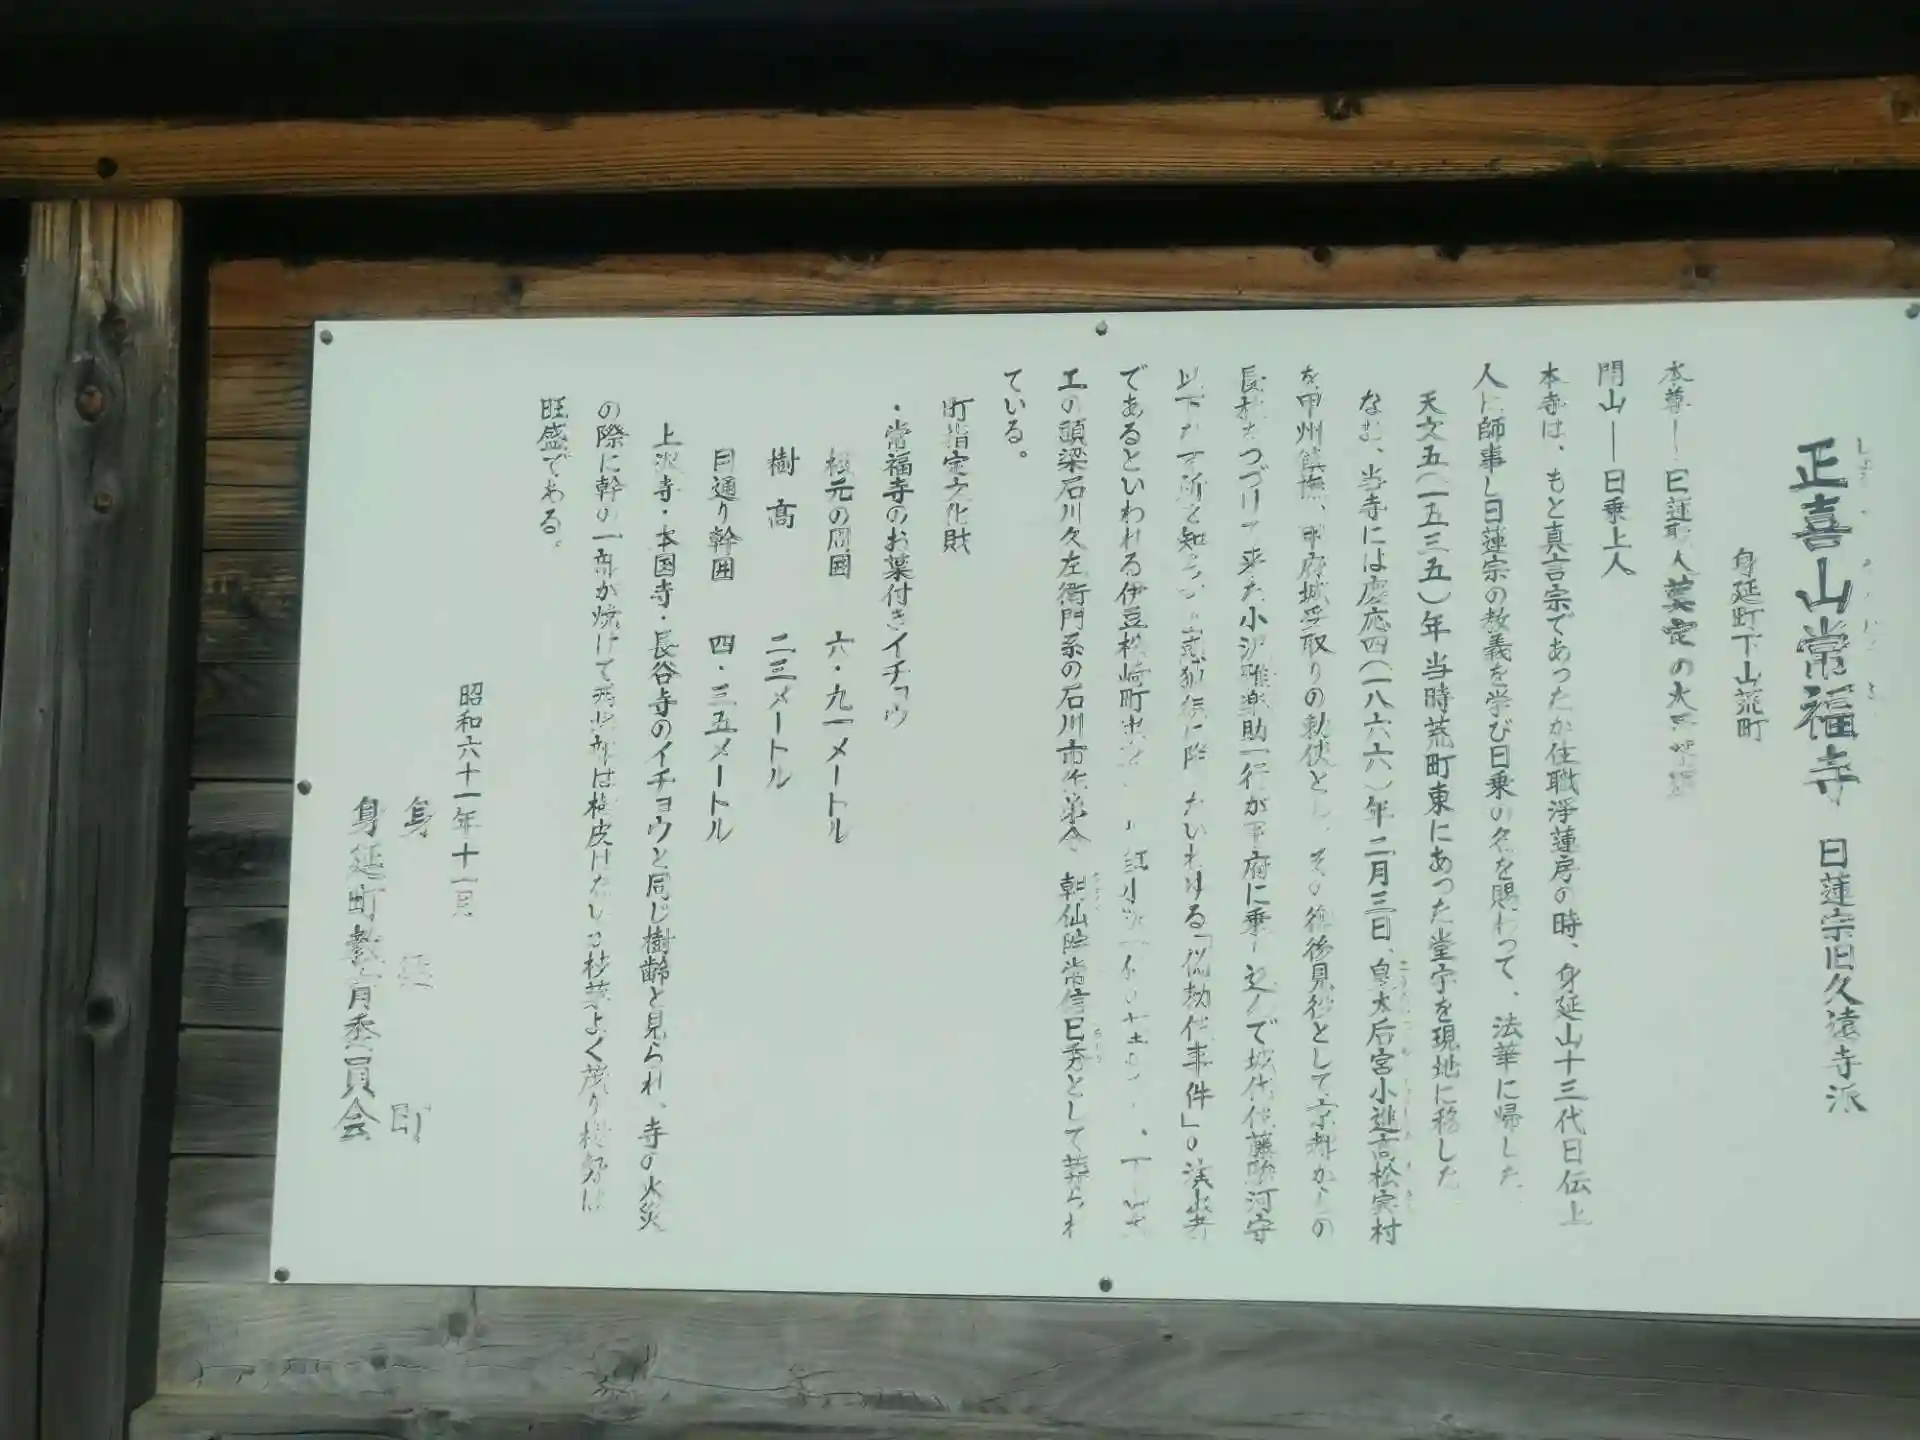 正喜山常福寺 日蓮宗旧久遠寺派
身延町下山荒町
本尊―日蓮聖人奠定の大
開山―日乗上人
本寺は、もと真言宗であったが住職淨蓮房の時、身延山十三代日伝上
人に師事し日蓮宗の教義を学び日乗の名を賜わって、法華に帰した
天文五(一五三五)年当時荒町東にあった堂宇を現地に移した
なお、当寺には慶応四(一八六六)年二月三日、皇太后宮小進高松実村
を甲州鎮撫、甲府城受取りの勅使とし、その後後見役として京都からの
長旅をつづけて来た小沢雅楽助一行が甲府に乗り込んで城代佐藤駿河守
以下 いわゆる「偽勅使事件」の演出者
であるといわれる伊豆松崎町出
工の頭梁石川久左衛門系の石川市 弟 朝仙院常信日秀として葬られ
ている。
町指定文化財
・常福寺のお葉付きイチョウ
根元の周囲 六・九一メートル
樹高 二三メートル
目通り幹囲 四・三五メートル
上沢寺・本国寺・長谷寺のイチョウと同じ樹齢と見られ、寺の火災
の際に幹の一部が焼けて は樹皮はないが枝葉よく茂り樹勢は
旺盛である。
昭和六十一年十一月
身延町
身延町教育委員会